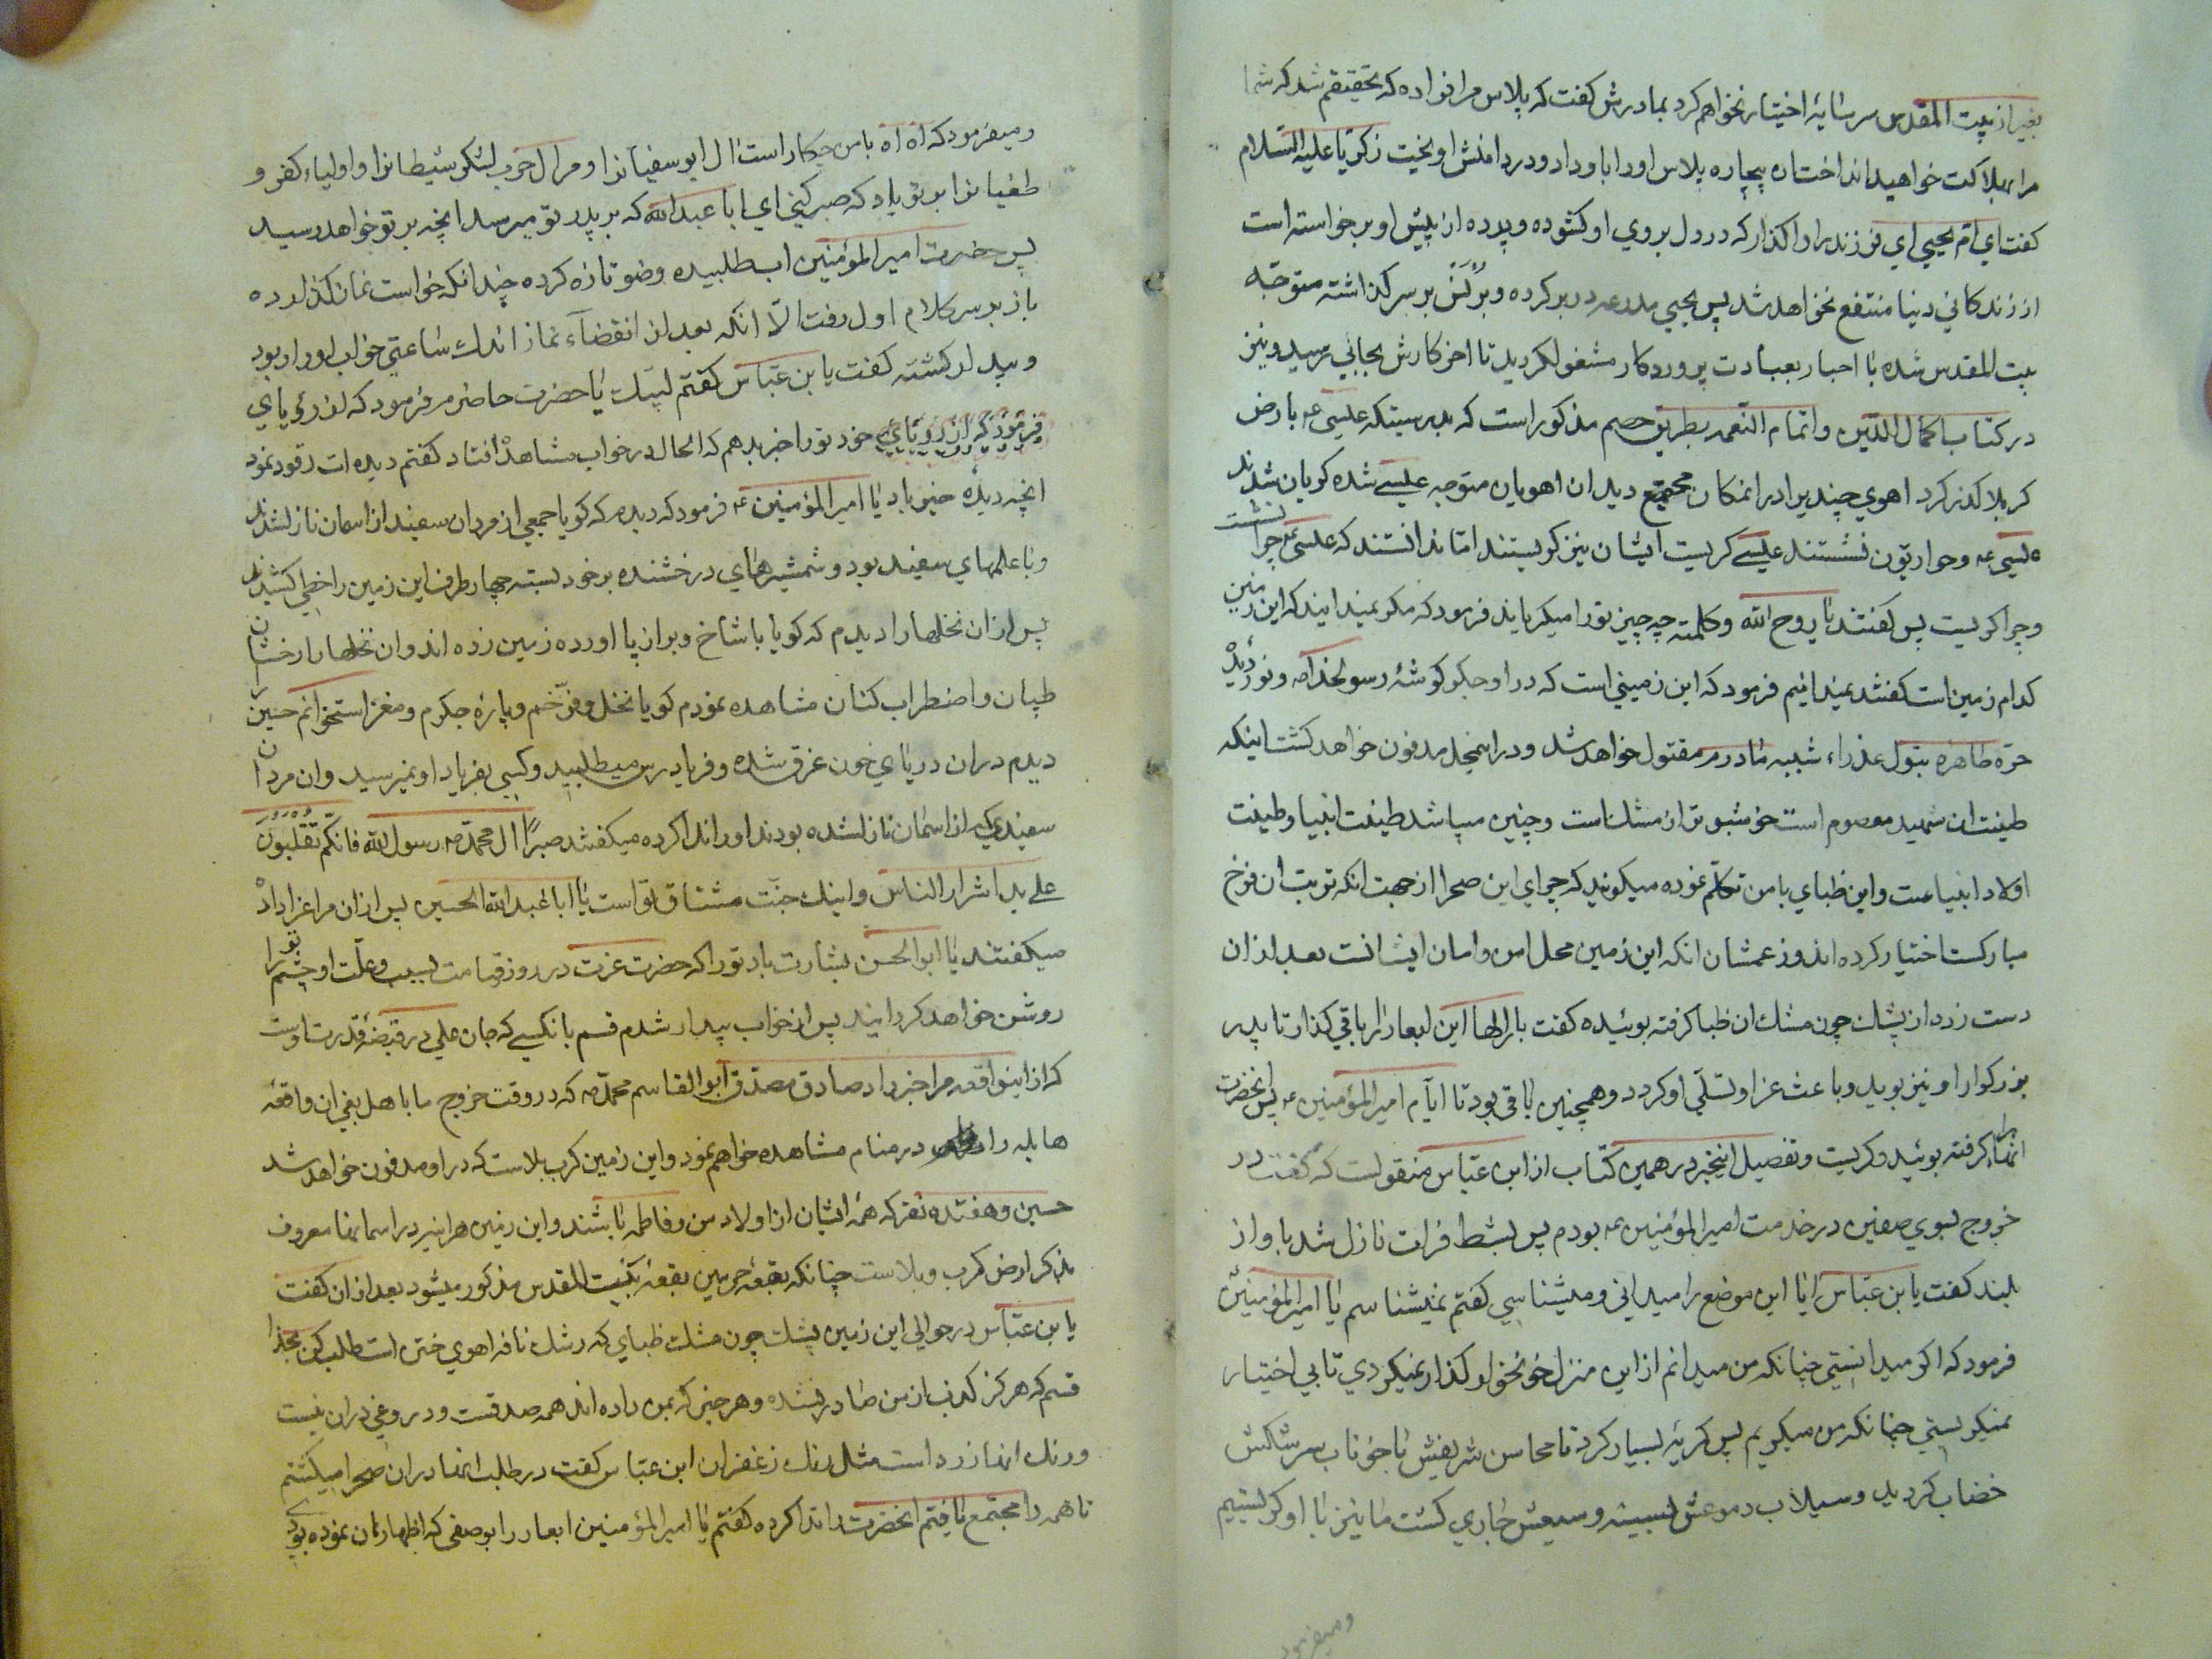 بغیر از بیت المقدس سر سایهٔ اختیار نخواهم کرد بمادرش کفت که پلاس مرا فرا ده که تحقیقم شد که شما
مرا بهلاکت خواهید انداخت ان بیچاره پلاس اورا باو داد ودر دامنش اویخت زکریا علیه السلام
کفت ای ام یحیی ای فرزند را واکذار که در دل بروی او کشوده وپرده از پیش او برخواسته است
از زندکانی دنیا منتفع نخواهد شد پس یحیی مدرعه در بر کرده وبرنس بر سر کذاشته متوجّه
بیت المقدس شده با احبار بعبادت پروردکار مشغول کردید تا اخر کارش بجائی رسید ونیز
در کتاب اکمال الدّین واتمام النّعمه بطریق خصم مذکور است که بدرستیکه عیسی ع بارض
کربلا کذر کرد اهوی چند برا در انمکان مجتمع دید ان اهویان متوجه عیسی شده کریان شدند
عیسی ع وحواریّون نشستند عیسی کریست ایشان نیز کریستند امّا ندانستند که عیسی ع چرا نشست
وچرا کریست پس کفتند یا روح الله وکلمته چه چیز تورا میکریاند فرمود که مکر نمیدانید که این زمین
کدام زمین است کفتند نمیدانیم فرمود که این زمینی است که در او جکر کوشهٔ رسولخدا ص ونور دیدهٔ
حرّه طاهرهٔ بتول عذراء شبیه مادرم مقتول خواهد شد ودر اینجا مدفون خواهد کشت اینکه
طینت ان شهید معصوم است خوشبوتر از مشک است وچنین میباشد طینت انبیا وطینت
اولاد انبیا عت واین ظبای با من تکلّم نموده میکویند که چرای این صحرا از جهت انکه تربت ان فرخ
مبارکست اختیار کرده اند وزعمشان انکه این زمین محل امن وامان ایشانست بعد از ان
دست زده از پشک چون مشک ان ظبا کرفته بوئیده کفت بار الها این ابعار را باقی کذار تا پدر
بزرکوار او نیز بوید وباعث عزا وتسلّی او کردد وهمچنین باقی بود تا ایّام امیر المؤمنین ع پس انحضرت
انها را کرفته بوئید وکریست وتفصیل اینخبر در همین کتاب از ابن عبّاس منقولست که کفت در
خروج بسوی صفین در خدمت امیر المؤمنین ع بودم پس بشط فرات نازل شد باواز
بلند کفت یا بن عبّاس ایا این موضع را میدانی ومیشناسی کفتم نمیشناسم یا امیر المؤمنین
فرمود که اکر میدانستی چنانکه من میدانم از این منزل خونخوار کذار نمیکردی تا بی اختیار
نمیکریستی چنانکه من میکریم پس کریه بسیار کرد تا محاسن شریفش با خوناب سرشکش
خضاب کردید وسیلاب دموعش بسینه وسیعش جاری کشت ما نیز با او کریستیم
ومیفرمود
ومیفرمود که اه اه با من چکار است ال ابو سفیانرا ومر ال حرب لشکر شیطانرا واولیاء کفر و
طغیانرا بر تو باد که صبر کنی ای ابا عبدالله که بر پدر تو میرسد انچه بر تو خواهد رسید
پس حضرت امیر المؤمنین اب طلبیده وضو تازه کرده چندانکه خواست نماز کذارده
باز بر سر کلام اول رفت الّا انکه بعد از انقضآء نماز اندک ساعتی خواب اورا ربود
وبیدار کشته کفت یا بن عبّاس کفتم لبّیک یا حضرت حاضرم فرمود که از رؤیای
فرمود که از رویای خود تورا خبر بدهم که الحال در خواب مشاهد افتاد کفتم دیده ات رقود نمود
انچه دیدهٔ خیر باد یا امیر المؤمنین ع فرمود که دیدم که کویا جمعی از مردان سفید از اسمان نازلشدند
وبا علمهای سفید بود وشمشیرهای درخشنده بر خود بسته چهار طرف این زمین را خطی کشیدند
پس از ان نخلها را دیدم که کویا با شاخ وبر از پا اورده زمین زده اند وان نخلها را رخشان
طپان واضطراب کنان مشاهده نمودم کویا نخل وفرّخم وپارهٔ جکرم ومغز استخوانم حسین را
دیدم در ان دریای خون غرق شده وفریادرس میطلبید وکسی بفریاد او نمیرسید وان مردان
سفیدی که از اسمان نازلشده بودند اورا ندا کرده میکفتند صبرًا ال محمّد ص رسول الله فانکّم تقتلون
علی ید اشرار الناس واینک جنّت مشتاق تو است یا ابا عبد الله الحسین پس از ان مرا عزا داده
میکفتند یا ابو الحسن بشارت باد تورا که حضرت عزت در روز قیامت بسبب وعلّت او چشم تورا
روشن خواهد کردانید پس از خواب بیدار شدم قسم بانکسی که جان علی در قبضهٔ قدرت اوست
که از اینواقعه مرا خبر داد صادق مصدّق ابو القاسم محمّد ص که در وقت خروج ما باهل بغی ان واقعهٔ
هایله را در منام مشاهده خواهم نمود واین زمین کرب بلاست که در او مدفون خواهد شد
حسین وهفتده نفر که همهٔ ایشان از اولاد من وفاطمه باشند واین زمین هراینه در اسمانها معروف
بذکر ارض کرب وبلاست چنانکه بقعهٔ حرمین بقعهٔ بیت المقدس مذکور میشود بعد از ان کفت
یا بن عبّاس در حوالی این زمین پشک چون مشک ظبای که رشک نافه اهوی ختن است طلب کن بخدا
قسم که هرکز کذب از من صادر نشده وهر خبر که بمن داده اند همه صدقست ودروغی در ان نیست
ورنک انها زرد است مثل رنک زعفران ابن عبّاس کفت در طلب انها در ان صحرا میکشتم
تا همه را مجتمع یافتم انحضرت را ندا کرده کفتم یا امیر المؤمنین ابعار را بوصفی که اظهار ان نموده بودی